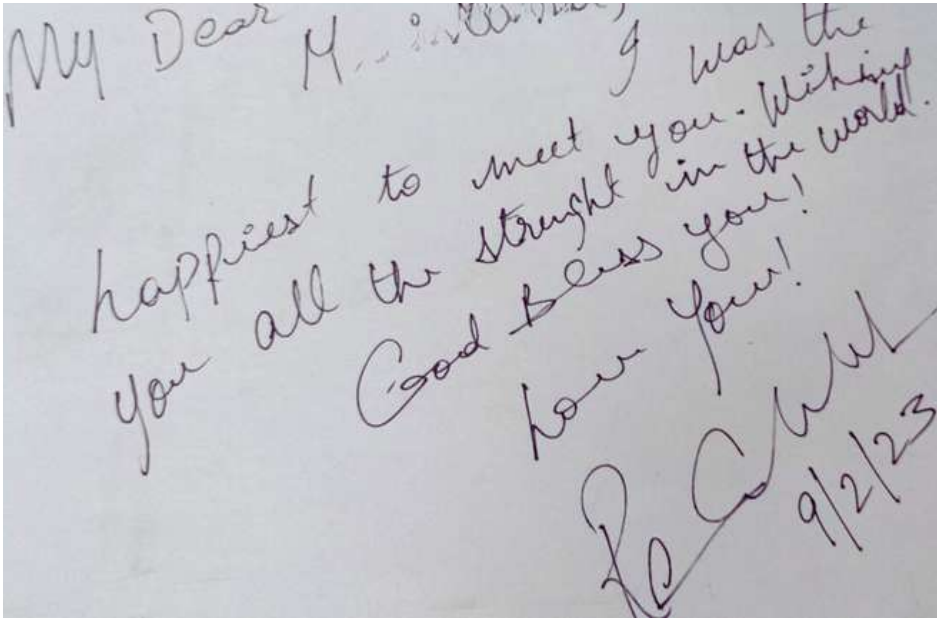 My Dear
I was the
happiest to meet you. Wihing
you all the strenght in the world.
Good Bless you!
Love You!
9/2/23